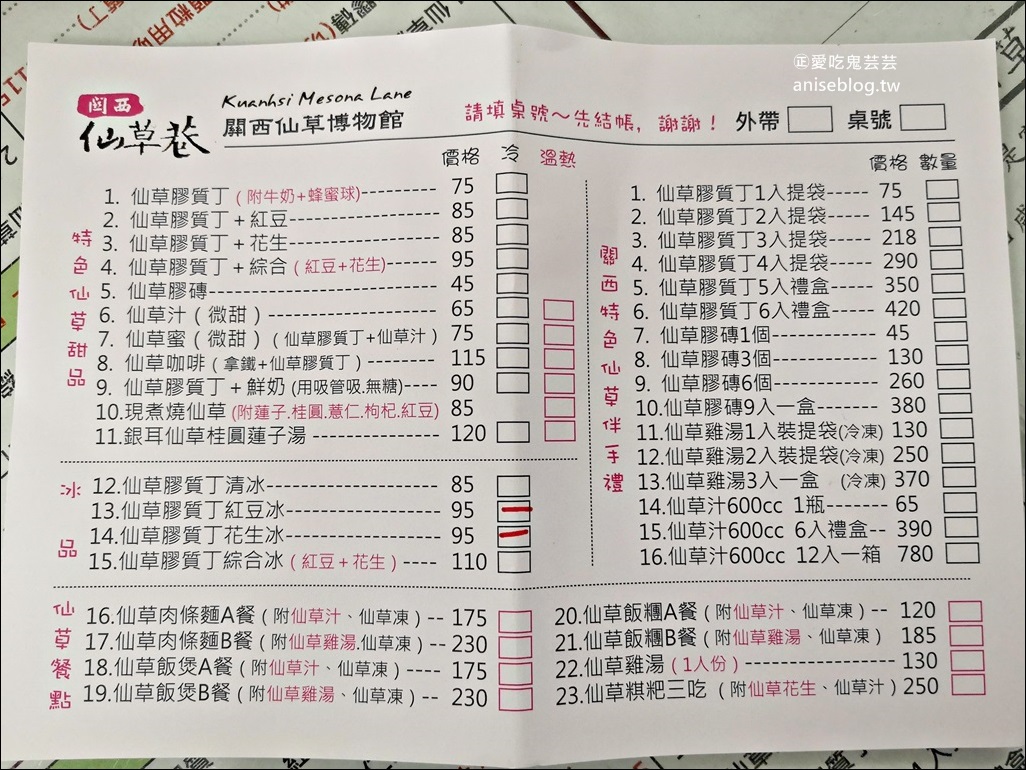 ㊣愛吃鬼芸芸
aniseblog.tw
關西
仙草巷
Kuanhsi Mesona Lane
關西仙草博物館
請填桌號～先結帳，謝謝！ 外帶 桌號
價格 冷 溫熱
特色仙草甜品
1. 仙草膠質丁（附牛奶+蜂蜜球)---------- 75
2. 仙草膠質丁＋紅豆-------------------- 85
3. 仙草膠質丁＋花生-------------------- 85
4. 仙草膠質丁＋綜合（紅豆+花生)------ 95
5. 仙草膠磚----------------------------- 45
6. 仙草汁（微甜）---------------------- 65
7. 仙草蜜（微甜）（仙草膠質丁+仙草汁） 75
8. 仙草咖啡（拿鐵+仙草膠質丁）--------- 115
9. 仙草膠質丁＋鮮奶 (用吸管吸.無糖)----- 90
10.現煮燒仙草 (附蓮子.桂圓.薏仁.枸杞.紅豆) 85
11.銀耳仙草桂圓蓮子湯 ---------------- 120
冰品
12.仙草膠質丁清冰--------------------- 85
13.仙草膠質丁紅豆冰------------------- 95
14.仙草膠質丁花生冰------------------- 95
15.仙草膠質丁綜合冰（紅豆＋花生）----- 110
價格 數量
關西特色仙草伴手禮
1. 仙草膠質丁1入提袋----- 75
2. 仙草膠質丁2入提袋----- 145
3. 仙草膠質丁3入提袋----- 218
4. 仙草膠質丁4入提袋----- 290
5. 仙草膠質丁5入禮盒----- 350
6. 仙草膠質丁6入禮盒----- 420
7. 仙草膠磚1個------------ 45
8. 仙草膠磚3個------------ 130
9. 仙草膠磚6個------------ 260
10.仙草膠磚9入一盒-------- 380
11.仙草雞湯1入裝提袋(冷凍) 130
12.仙草雞湯2入裝提袋(冷凍) 250
13.仙草雞湯3入一盒 (冷凍) 370
14.仙草汁600cc 1瓶-------- 65
15.仙草汁600cc 6入禮盒-- 390
16.仙草汁600cc 12入一箱 780
仙草餐點
16.仙草肉條麵A餐（附仙草汁、仙草凍）-- 175
17.仙草肉條麵B餐（附仙草雞湯.仙草凍）-- 230
18.仙草飯煲A餐（附仙草汁、仙草凍）---- 175
19.仙草飯煲B餐（附仙草雞湯、仙草凍）-- 230
20.仙草飯糰A餐（附仙草汁、仙草凍）-- 120
21.仙草飯糰B餐（附仙草雞湯、仙草凍） 185
22.仙草雞湯（1人份）------------------ 130
23.仙草粿粑三吃 （附仙草花生、仙草汁）250